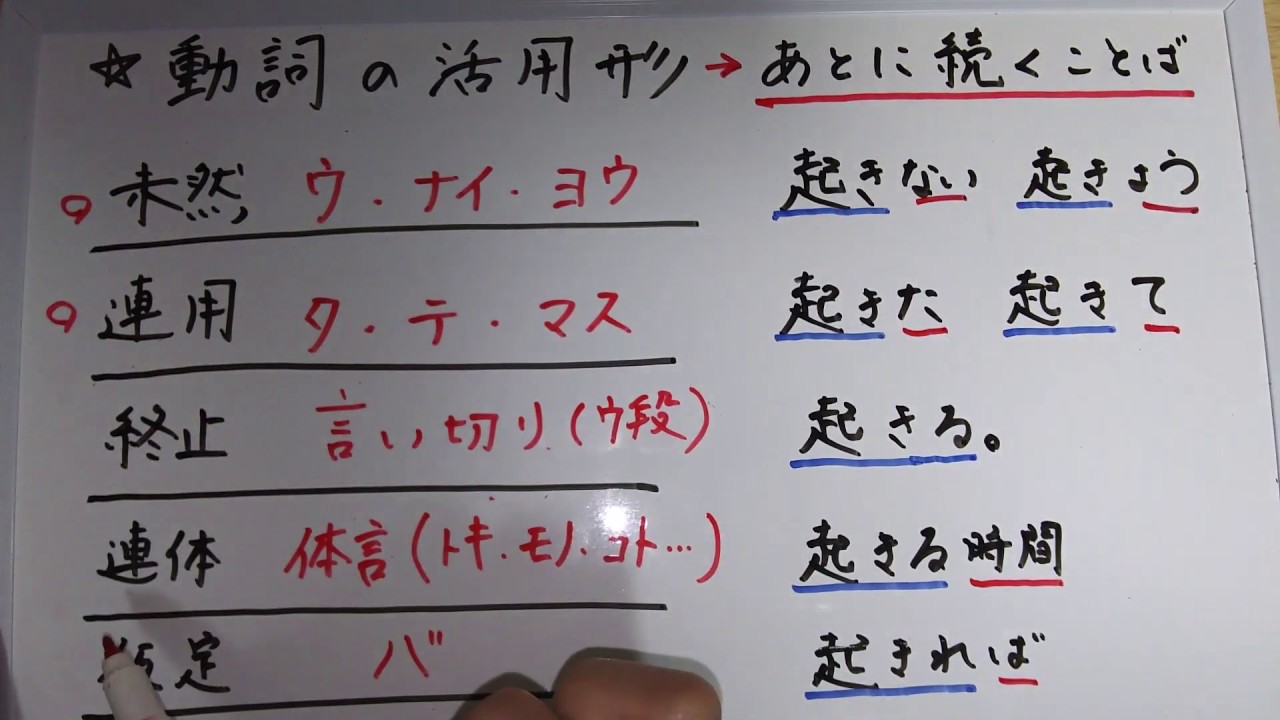 ☆動詞の活用形→あとに続くことば
未然 ウ・ナイ・ヨウ 起きない 起きよう
連用 タ・テ・マス 起きた 起きて
終止 言い切り(ウ段) 起きる。
連体 体言(トキ・モノ・コト…) 起きる時間
仮定 バ 起きれば